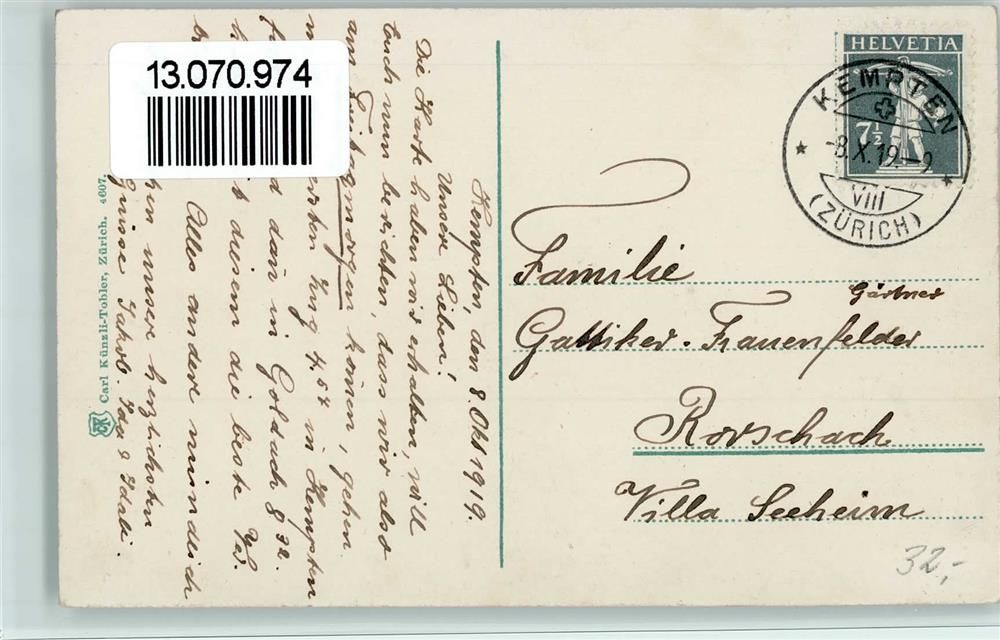 13.070.974
Kempten, den 8. Okt 1919.
Unsere Lieben!
Die Karte haben wir erhalten, will
Euch nun berichten, dass wir also
am Freitagmorgen kommen, gehen
ersten Zug 4.54 in Kempten
dan in Goldach 8 32.
diesem die beste
Alles andere mündlich
unsere herzlichsten
Grüsse Jakob. Ida & Idali.
Carl Künzli-Tobler, Zürich. 4607.
CKT
HELVETIA
7½
KEMPTEN
-8.X.19.-9
VIII
(ZÜRICH)
Familie
Gärtner
Gattiker-Frauenfelder
Rorschach
Villa Seeheim
32,-